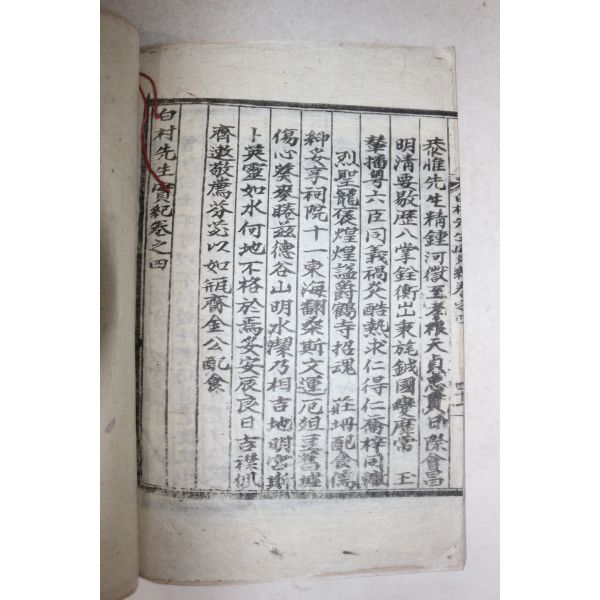 恭惟先生精鍾河嶽至孝根天貞忠貫日際會昌
明清要敭歷八掌銓衡出秉旄鉞國變靡常 王
輦播粤六臣同義禍炎酷熱求仁得仁喬梓同
烈聖寵褒煌煌諡爵鶴寺招魂 莊壇配食儒
紳妥享祠院十一東海翻桑斯文運厄俎豆舊墟
傷心葵麥睠玆德谷山明水潔乃相吉地明宮斯
卜英靈如水何地不格於焉妥安辰良日吉襟佩
齊遫敬薦芬苾以如甁齋金公配食
白村先生實紀卷之四